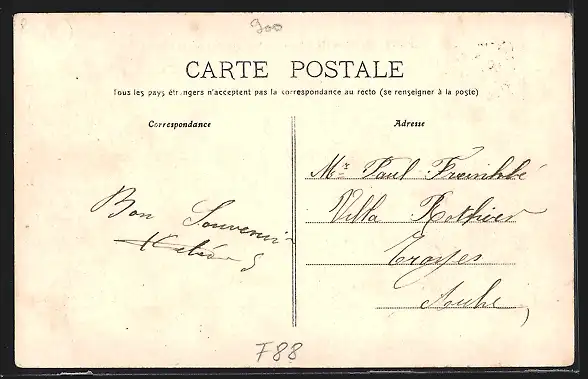 900
CARTE POSTALE
Tous les pays étrangers n'acceptent pas la correspondance au recto (se renseigner à la poste)
Correspondance
Adresse
Mr Paul
Villa Rothier
Troyes
Aube
Bon Souvenir
F88